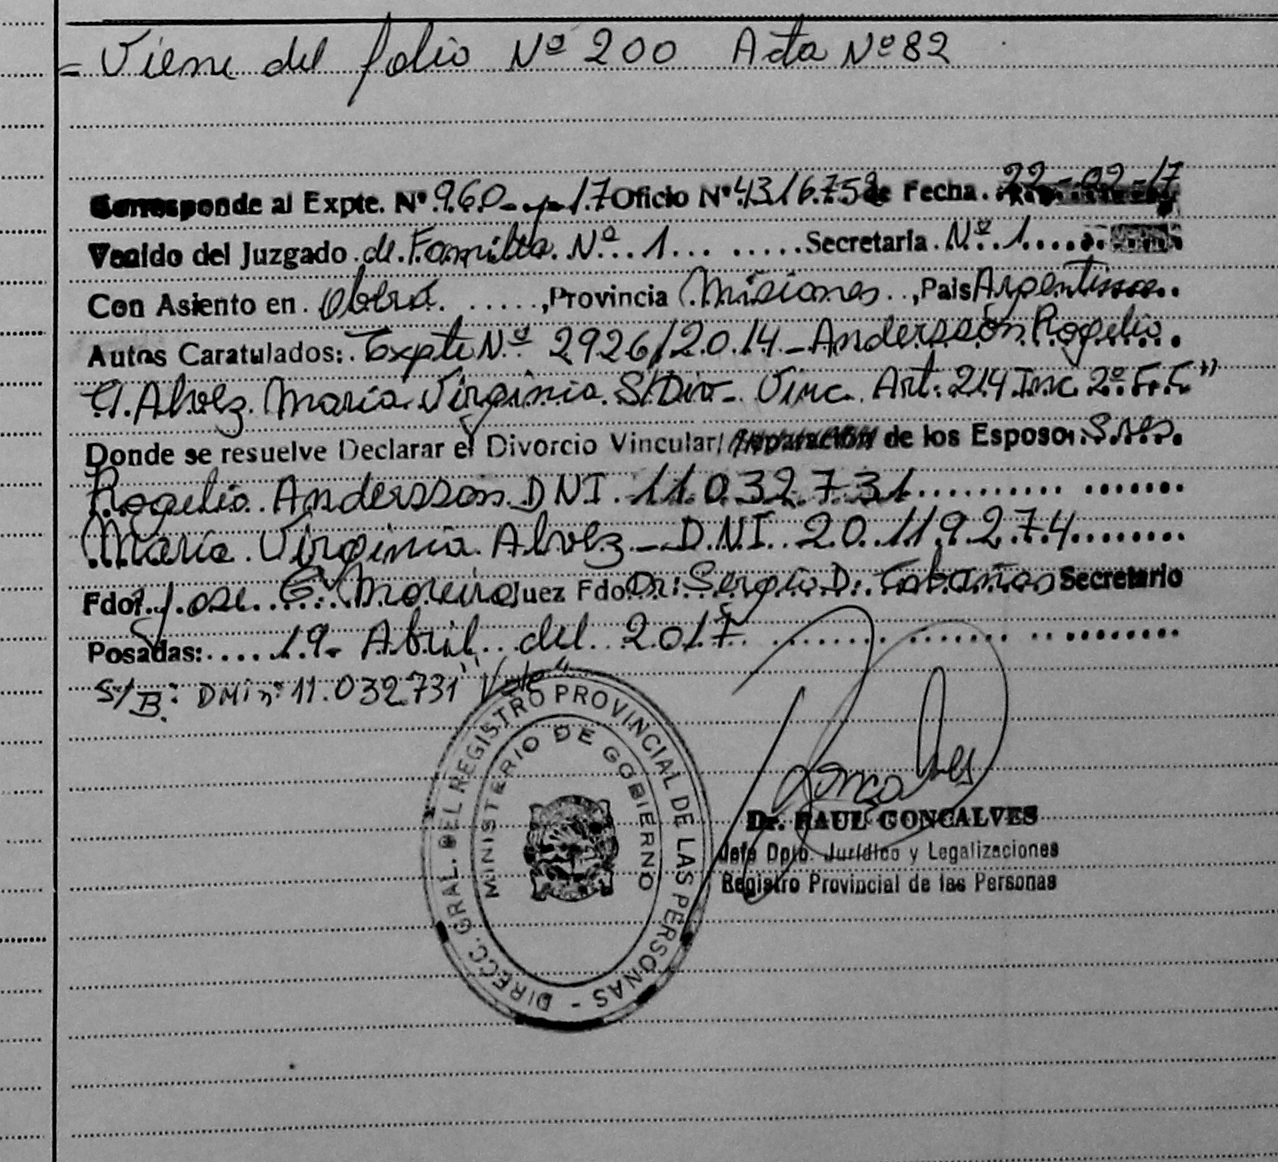 = Viene del folio Nº 200 Acta Nº 82
Corresponde al Expte. Nº 960-y-17 Oficio Nº 4316759 de Fecha. 22-02-17
Venido del Juzgado de Familia Nº 1... .....Secretaria. Nº 1.....
Con Asiento en. Oberá. .....,Provincia Misiones..,Pais Argentina..
Autos Caratulados:. Expte Nº 2926/2014-Andersson Rogelio.
C/. Alvez. María Virginia. S/Div- Vinc. Art. 214 Inc 2º.
Donde se resuelve Declarar el Divorcio Vincular/ Separación de los Esposo: Sres.
Rogelio. Andersson DNI. 11.032.731.................
María. Virginia. Alvez-D.N.I. 20.119.274........
Fdo: Jose. G. Moreira Juez Fdo Dr: Sergio D. Cabañas Secretario
Posadas:....19- Abril del. 2017
S/B: DNI nº 11.032731 "Vale"
DIRECC. GRAL. DEL REGISTRO PROVINCIAL DE LAS PERSONAS -
MINISTERIO DE GOBIERNO
Goncalves
Dr. RAUL GONCALVES
Jefe Dpto. Jurídico y Legalizaciones
Registro Provincial de las Personas